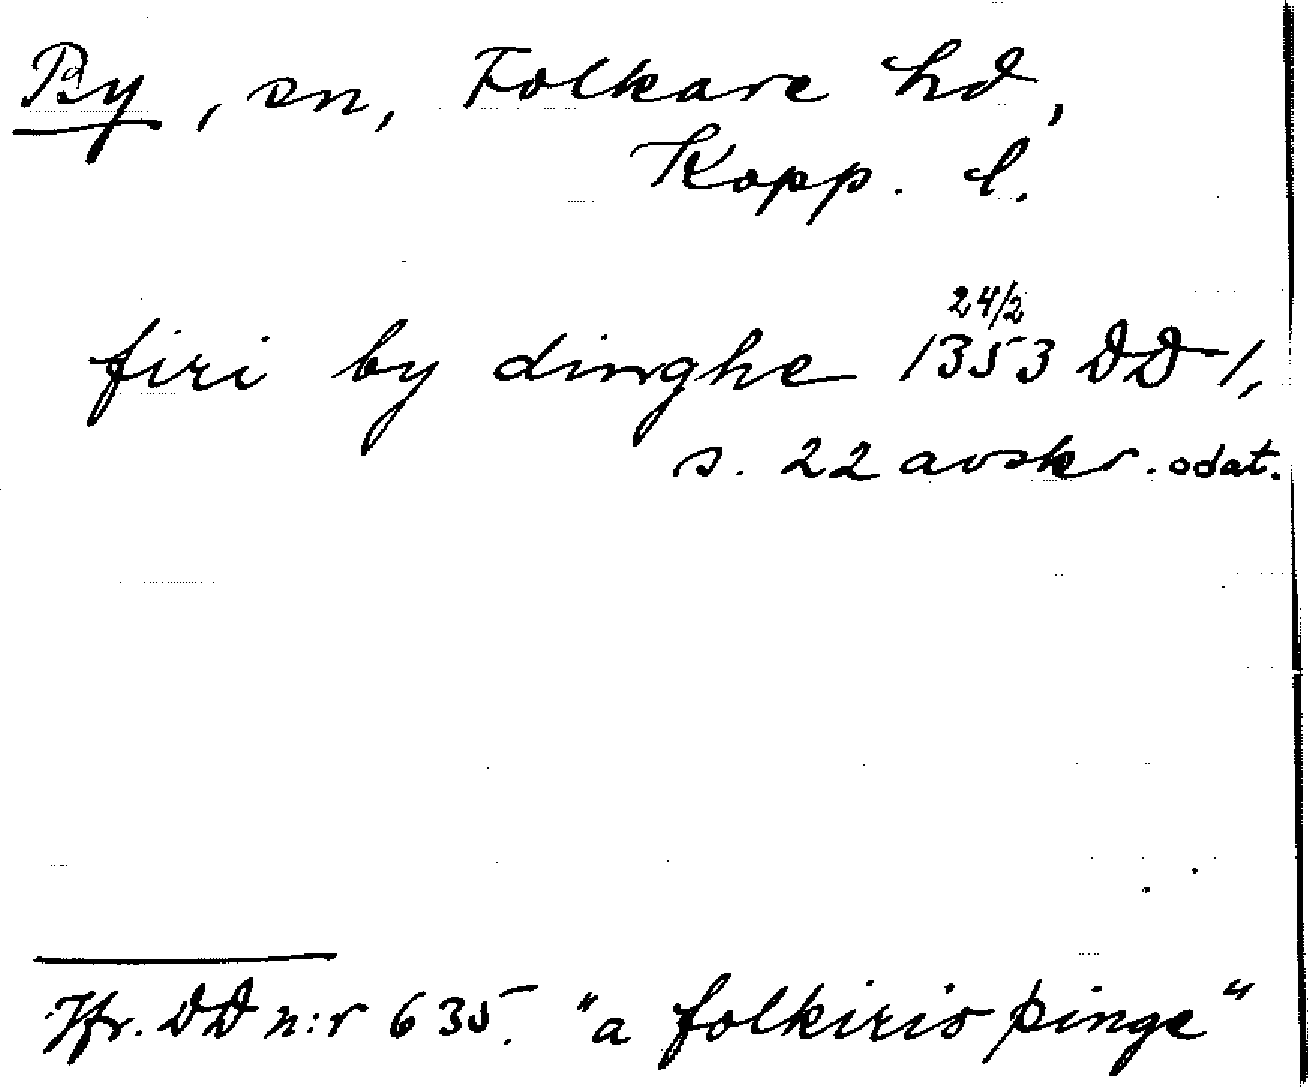 By, sn, Folkare hd,
Kopp. l.
firi by dinghe 24/2 1353 DD 1,
s. 22 avskr. odat.
Jfr. DD n:r 635. "a folkiris þinge"